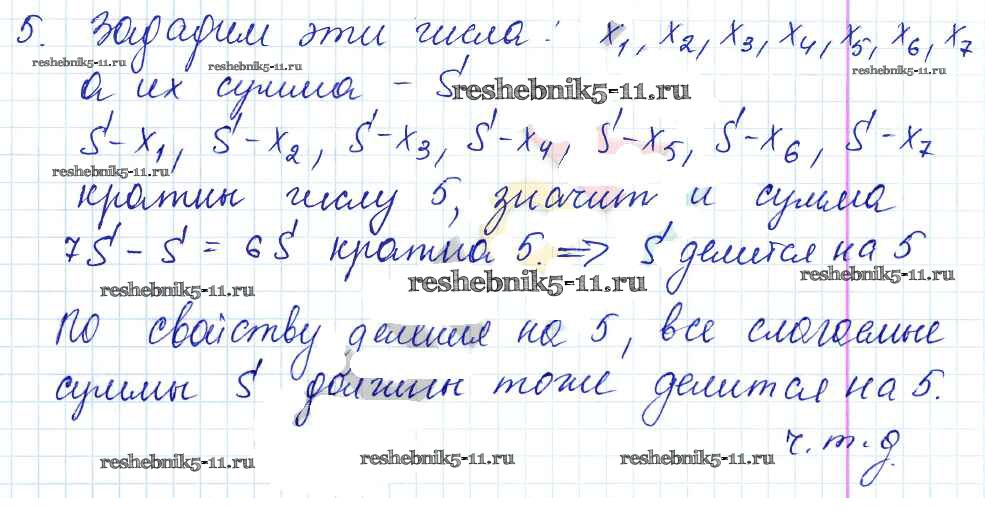 5. Зададим эти числа: x₁, x₂, x₃, x₄, x₅, x₆, x₇
reshebnik5-11.ru reshebnik5-11.ru reshebnik5-11.ru
а их сумма – S reshebnik5-11.ru
S-x₁, S-x₂, S-x₃, S-x₄, S-x₅, S-x₆, S-x₇
reshebnik5-11.ru
кратны числу 5, значит и сумма
7S - S = 6S кратна 5. => S делится на 5
reshebnik5-11.ru reshebnik5-11.ru reshebnik5-11.ru
по свойству деления на 5, все слагаемые
суммы S должны тоже делится на 5.
ч.т.д
reshebnik5-11.ru reshebnik5-11.ru reshebnik5-11.ru